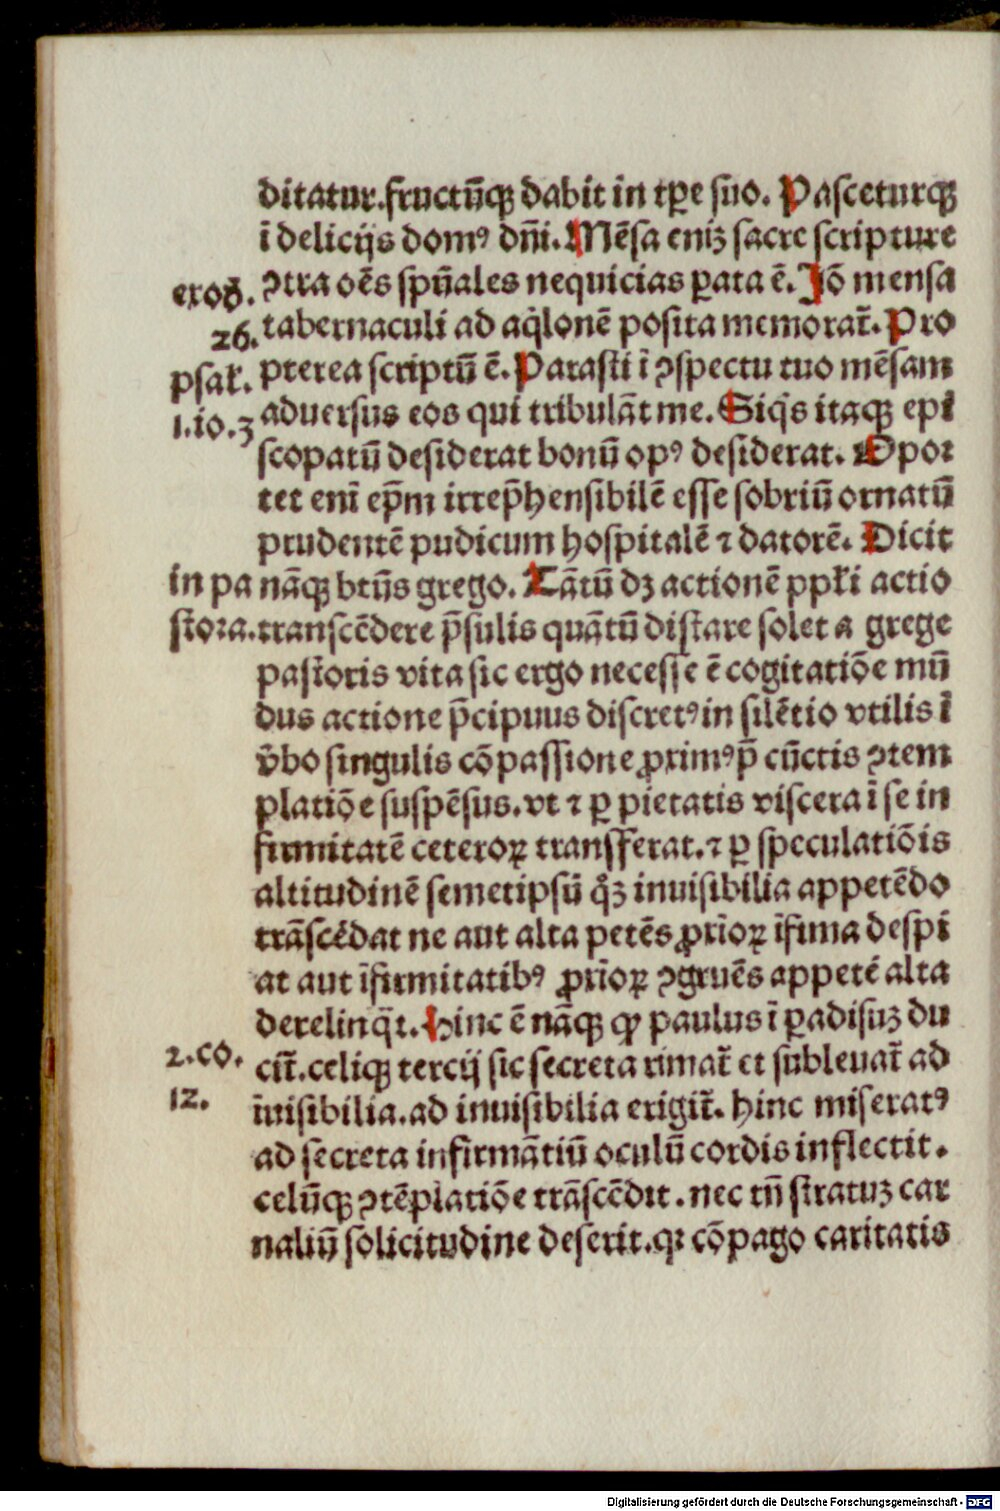 ditatur.fructūq̄ꝫ dabit in tꝑe suo. Pasceturqꝫ
ī delicijs domꝰ dn̄i. Mēsa eniꝫ sacre scripture
ꝯtra oēs spūales nequicias ꝑata ē. Jō mensa
exoď.
tabernaculi ad aq̇lonē posita memorat̄. Pro
26.
pterea scriptū ē. Parasti ī ꝯspectu tuo mēsam
psal̄.
aduersus eos qui tribulāt me. Siq̇s itaqꝫ epi
1.io.3
scopatū desiderat bonū opꝰ desiderat. Opor
tet enī ep̄m irrep̄hensibilē esse sobriū ornatū
prudentē pudicum hospitalē ⁊ datorē. Dicit
in pa
nāqꝫ btūs grego. Tātū dꝫ actionē ppl̄i actio
stora.
transcēdere p̄sulis quātū distare solet a grege
pastoris vita sic ergo necesse ē cogitatiōe mū
dus actione p̄cipuus discretꝰ in silētio vtilis ī
v̄bo singulis cōpassione ꝓximꝰ p̄ cūctis ꝯtem
platiōe suspēsus. vt ⁊ ꝑ pietatis viscera ī se in
firmitatē ceteroꝝ transfferat. ⁊ ꝑ speculatiōis
altitudinē semetipsū qͦꝫ inuisibilia appetēdo
trāscēdat ne aut alta petēs ꝓxīoꝝ īfima despi
at aut īfirmitatibꝰ ꝓxīoꝝ ꝯgruēs appetē alta
derelinq̄t. Hinc ē nāqꝫ ꝙ paulus ī ꝑadisuꝫ du
2.co.
cit̄. celiqꝫ tercij sic secreta rimat̄ et subleuat̄ ad
12.
īuisibilia. ad inuisibilia erigit̄. hinc miseratꝰ
ad secreta infirmātiū oculū cordis inflectit.
celūqꝫ ꝯtēplatiōe trāscēdit. nec tn̄ stratuꝫ car
naliū solicitudine deserit. qꝛ cōpago caritatis
Digitalisierung gefördert durch die Deutsche Forschungsgemeinschaft - DFG